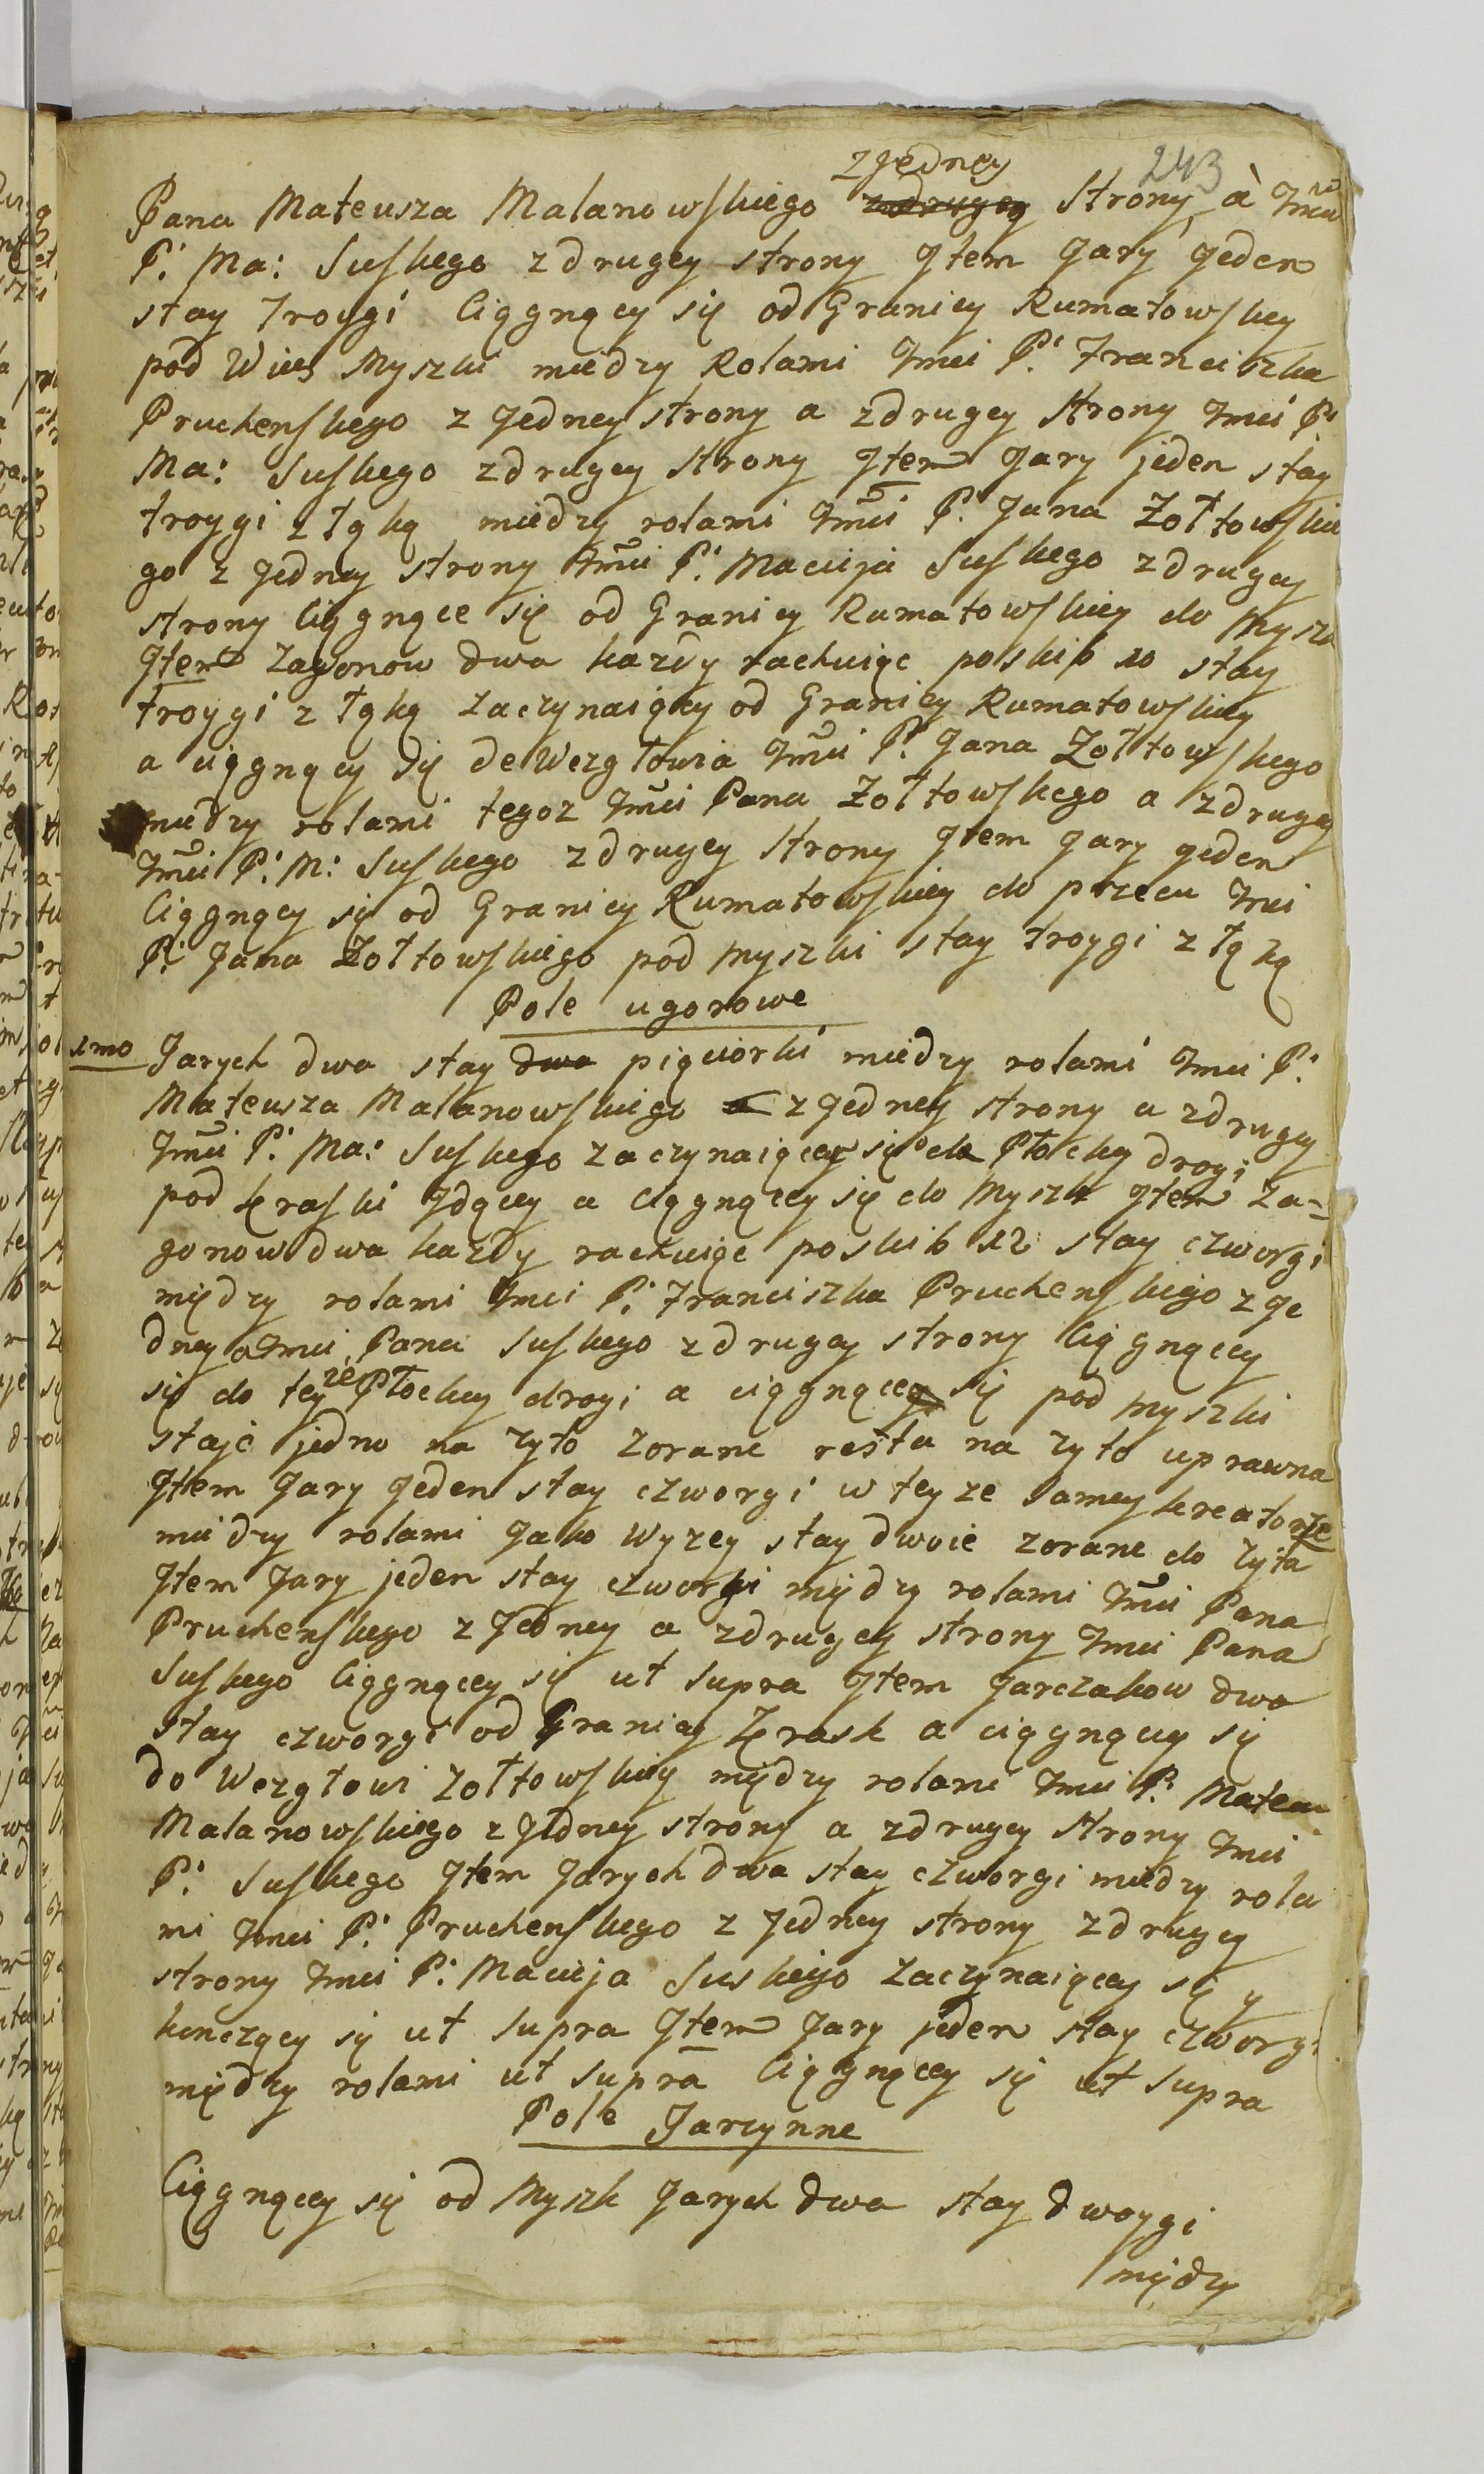 243
zJedney
Pana Mateusza Malanowskiego zdrugey Strony à Jmci
P: Ma: Suskego zdrugey strony Jtem Jary Jeden
stay troygi Ciągnący się od Granicy Rumatowskey
pod Wies Myszki miedzy Rolami Jmci P: Franciszka
Pruchenskego z Jedney strony a zdrugey Strony Jmci P:
Ma: Suskego zdrugey Strony Jtem Jary jeden stay
troygi z Tąką miedzy rolami Jmci P: Jana Zołtowskie
go z Jedney strony Jmci P: Macieja Suskego zdrugey
strony Ciągnące się od Granicy Rumatowskiey do Myszk
Jtem Zagonow dwa każdy rachuiąc poskib 10 stay
troygi z Tąką zaczynaiący od Granicy Rumatowskiey
a ciągnący się do Wezgłowia Jmci P: Jana Zołtowskego
miedzy rolami tegoz Jmci Pana Zołtowskego a zdrugey
Jmci P: M: Suskego zdrugey Strony Jtem Jary Jeden
Ciągnący się od Granicy Rumatowskiey do przecu Jmci
P: Jana Zołtowskiego pod Myszki stay troygi z Tąką
Pole ugorowe
1mo Jarych dwa stay dwa pięciorki miedzy rolami Jmci P:
Mateusza Malanowskiego a zJedney strony a zdrugey
Jmci P: Ma: Suskego zaczynaiącey się od Płockey drogi
pod Kraski Jdącey a Ciągnącey się do Myszk Jtem Za=
gonow dwa każdy rachuiąc poskib 12 stay czworgi
między rolami Jmci P: Franciszka Pruchenskiego z Je
dney a Jmci Pana Suskego zdrugey strony Ciągnącey
się do teyże Płockey drogi a ciągnącey się pod Myszki
staje jedno na żyto zorane resta na żyto uprawna
Jtem Jary Jeden stay czworgi w tey ze samey kreatorze
miedzy rolami Jako wyzey stay dwoie zorane do żyta
Jtem Jary jeden stay czworgi między rolami Jmci Pana
Pruchenskego z Jedney a zdrugey strony Jmci Pana
Suskego Ciągnącey się ut supra Jtem Jarczakow dwa
stay czworgi od Granicy Krask a ciągnącey się
do Wezgłowi Zołtowskiey między rolami Jmci P: Mateu
Malanowskiego z Jedney strony a zdrugey Strony Jmci
P: Suskego Jtem Jarych dwa stay czworgi miedzy rola
mi Jmci P: Pruchenskego z Jedney strony zdrugey
strony Jmci P: Macieja Suskiejo zaczynaiącey się y
konczący się ut supra Jtem Jary jeden stay czworgi
między rolami ut supra Ciągnącey się ut supra
Pole Jarzynne
Ciągnącey się od Myszk Jarych dwa stay dwoygi
między